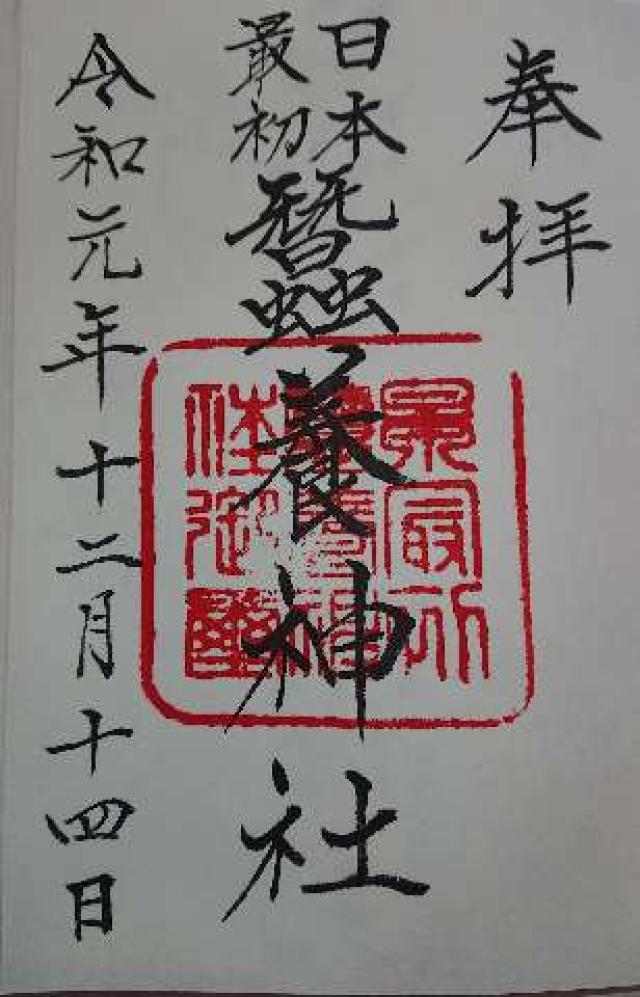 奉拝
日本
最初
蠶養神社
令和元年十二月十四日